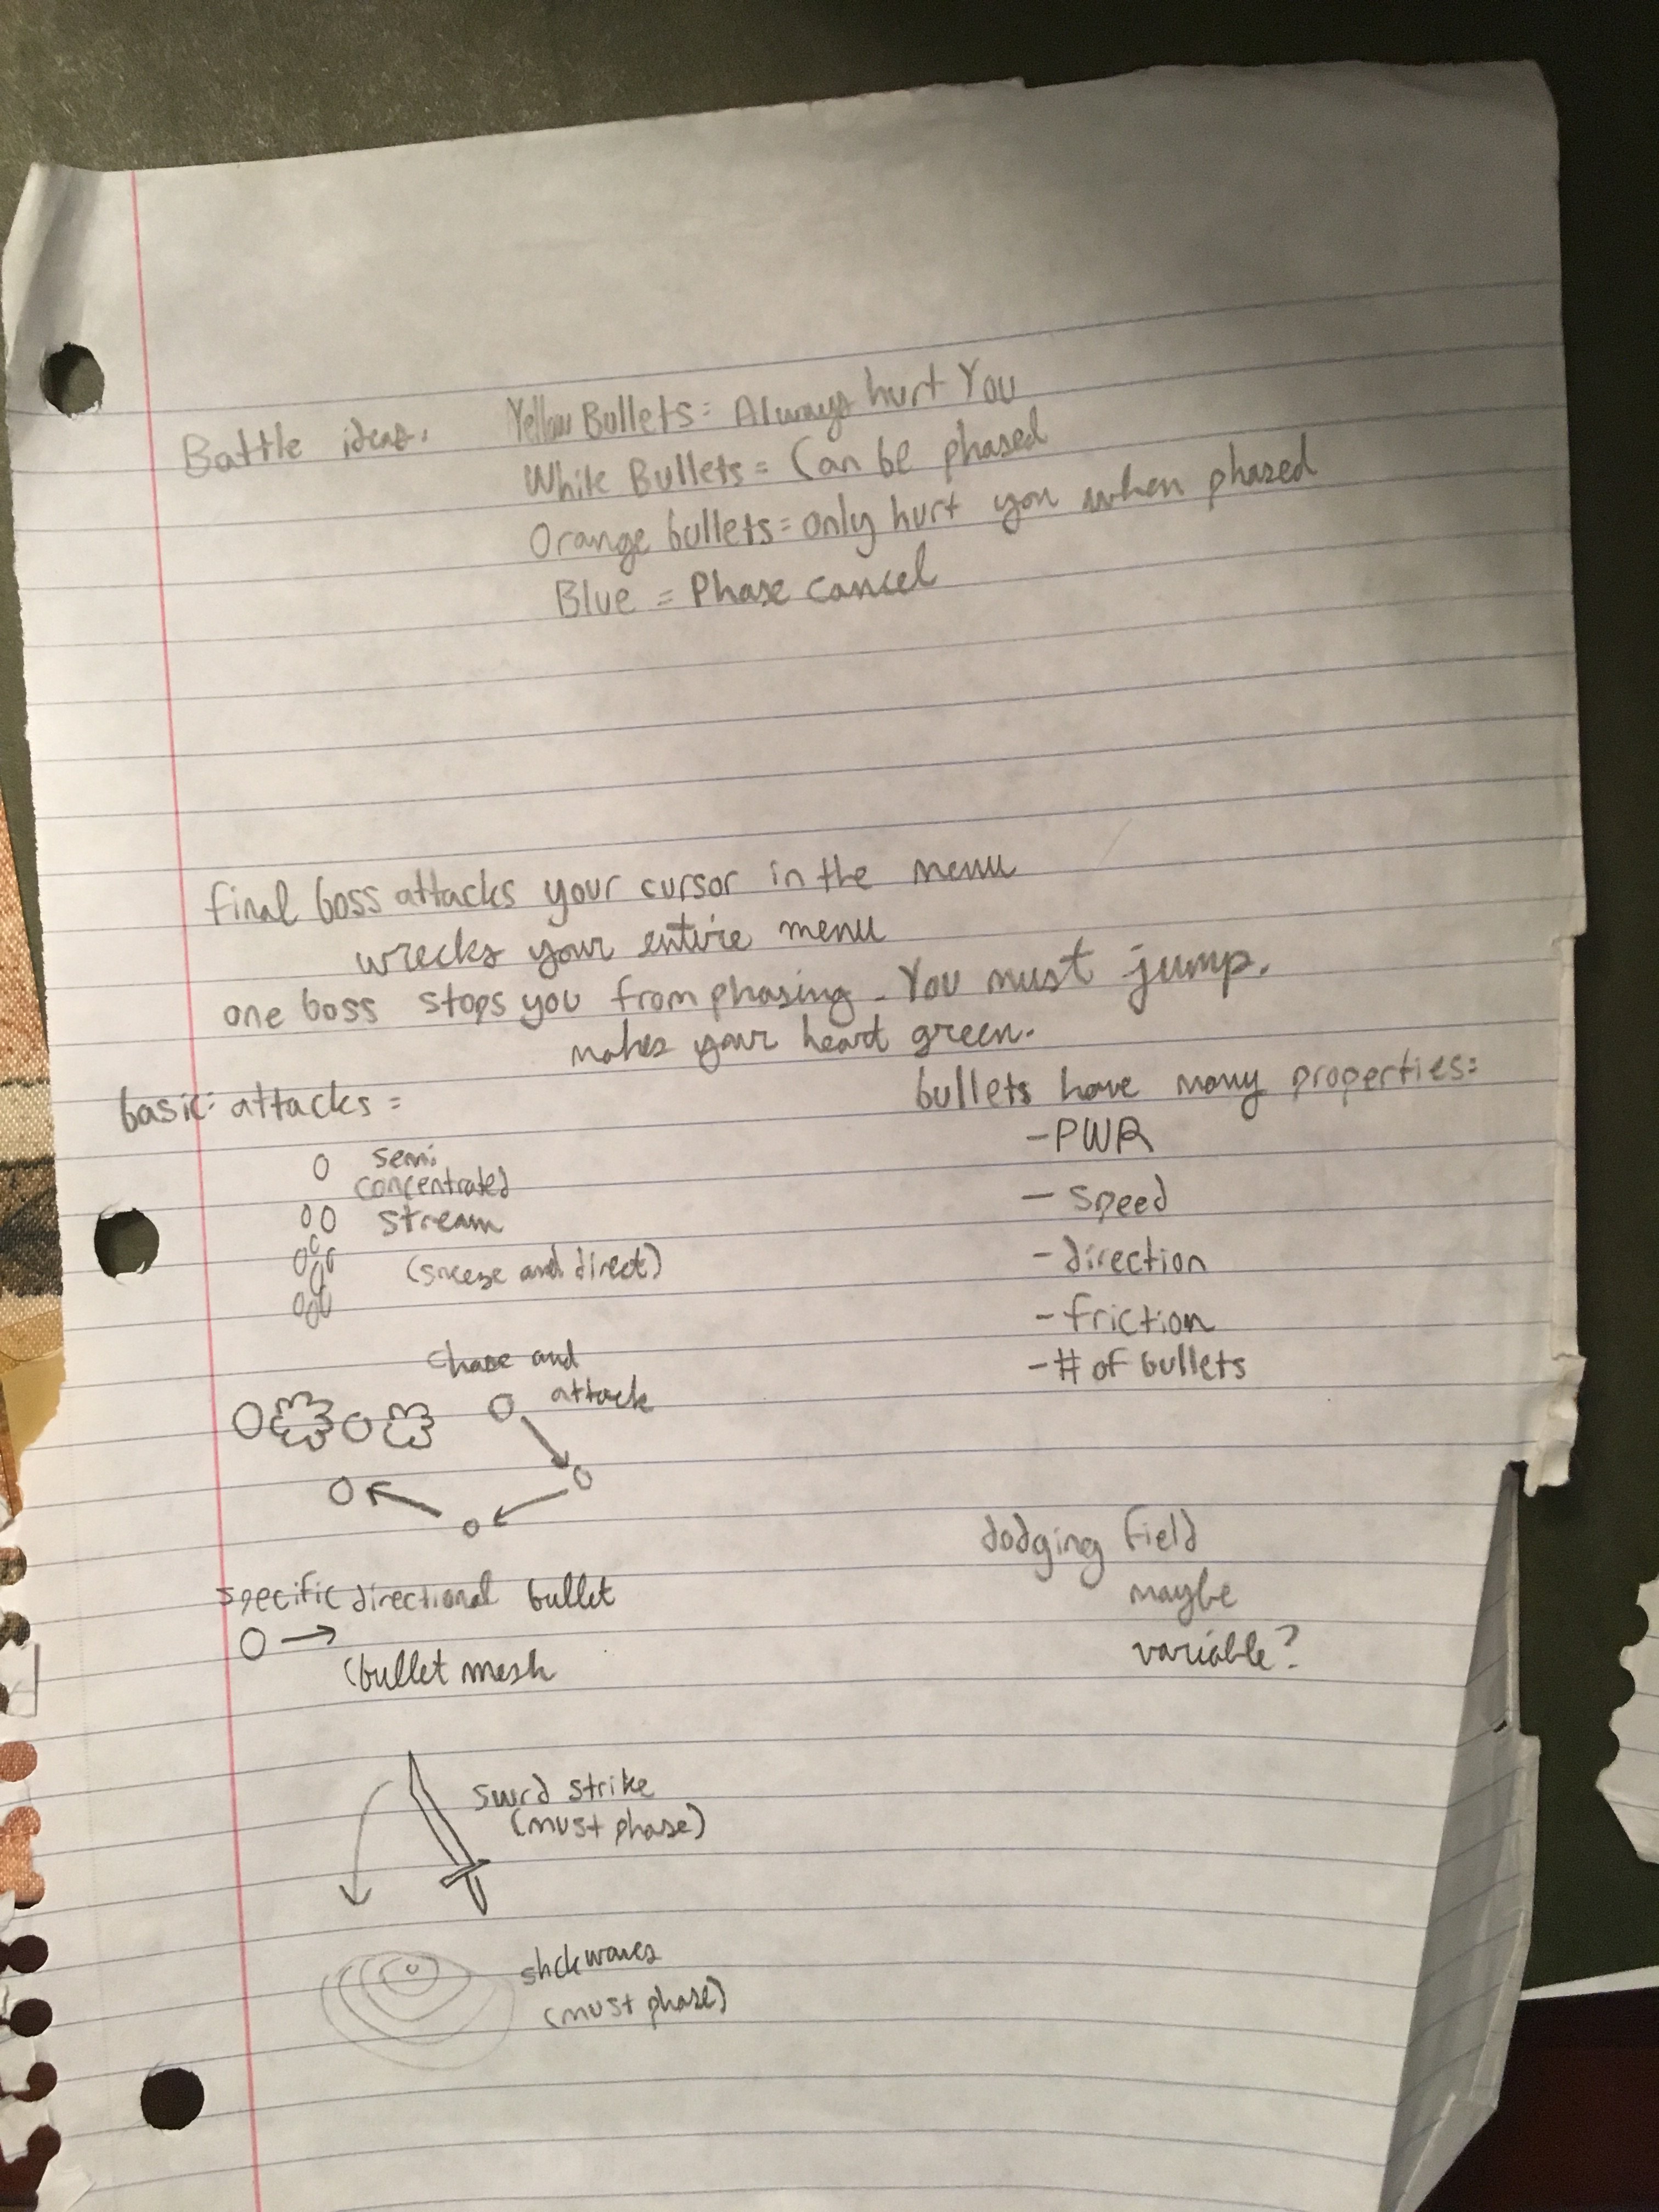 Battle ideas.
Yellow Bullets = Always hurt You
White Bullets = Can be phased
Orange bullets = only hurt you when phased
Blue = Phase cancel
final boss attacks your cursor in the menu
wrecks your entire menu
one boss stops you from phasing. You must jump.
makes your heart green.
basic attacks =
semi
concentrated
stream
(sneeze and direct)
chase and
attack
specific directional bullet
(bullet mesh
swrd strike
(must phase)
shckwaves
(must phase)
bullets have many properties:
- PWR
- speed
- direction
- friction
- # of bullets
dodging field
maybe
variable?